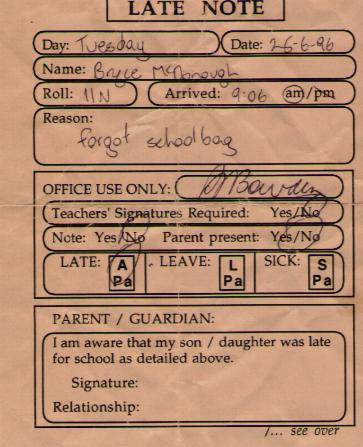 LATE NOTE
Day: Tuesday Date: 25-6-96
Name: Bryce McDonough
Roll: 11N Arrived: 9:06 am/pm
Reason:
forgot schoolbag
OFFICE USE ONLY:
Teachers' Signatures Required: Yes/No
Note: Yes/No Parent present: Yes/No
LATE: A Pa LEAVE: L Pa SICK: S Pa
PARENT / GUARDIAN:
I am aware that my son / daughter was late
for school as detailed above.
Signature:
Relationship:
/... see over